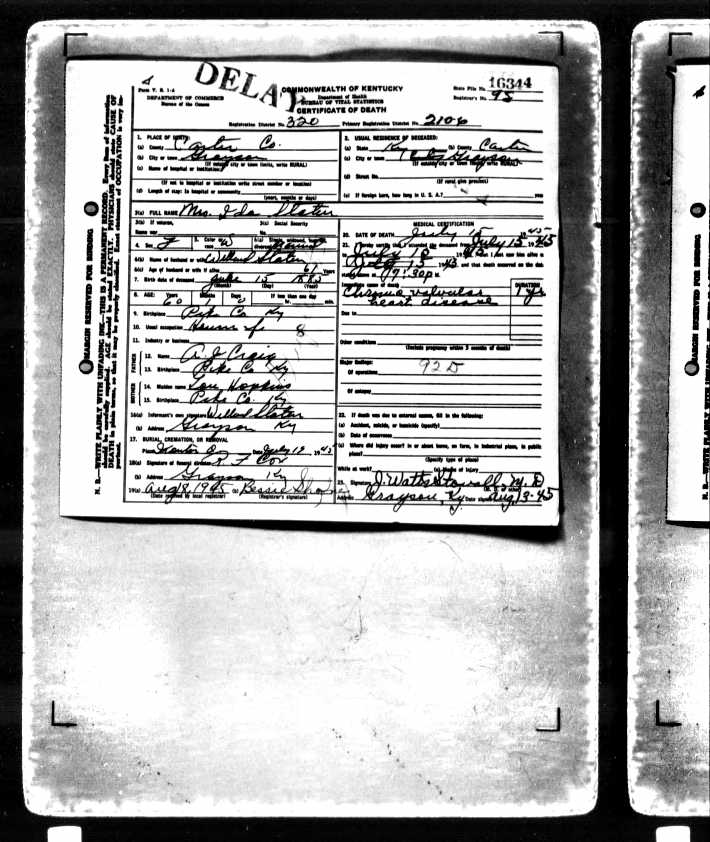 DELAY
Form V. S. 1-A
DEPARTMENT OF COMMERCE
Bureau of the Census
COMMONWEALTH OF KENTUCKY
Department of Health
BUREAU OF VITAL STATISTICS
CERTIFICATE OF DEATH
State File No. 16344
Registrar's No. 95
Registration District No. 320 Primary Registration District No. 2106
1. PLACE OF DEATH:
(a) County Carter Co.
(b) City or town Grayson
(If outside city or town limits, write RURAL)
(c) Name of hospital or institution:
(If not in hospital or institution write street number or location)
(d) Length of stay: In hospital or community
(years, months or days)
2. USUAL RESIDENCE OF DECEASED:
(a) State Ky (b) County Carter
(c) City or town Grayson
(If outside city or town limits write RURAL)
(d) Street No.
(If rural give precinct)
(e) If foreign born, how long in U. S. A.? years
3(a) FULL NAME Mrs. Ida Slater
3(b) If veteran,
Name war
3(c) Social Security
No.
4. Sex F 5. Color or race W 6(a) Single, widowed, married,
6(b) Name of husband or wife Willard Slater
6(c) Age of husband or wife if alive 61 Years
7. Birth date of deceased June 15 1885
(Month) (Day) (Year)
8. AGE: Years Months Days If less than one day
60 1 0 hr. min.
9. Birthplace Pike Co Ky
10. Usual occupation 8
11. Industry or business
FATHER
12. Name A. J. Craig
13. Birthplace Pike Co. Ky
MOTHER
14. Maiden name Lou Hopkins
15. Birthplace Pike Co. Ky
16(a) Informant's own signature Willard Slater
(b) Address Grayson Ky
17. BURIAL, CREMATION, OR REMOVAL
Place Date July 17, 1945
18(a) Signature of funeral director
(b) Address Grayson Ky
19(a) Aug 18, 1945 (b) Bessie
(Date received by local registrar) (Registrar's signature)
MEDICAL CERTIFICATION
20. DATE OF DEATH July 15 1945
21. I hereby certify that I attended the deceased from July 15 1945
Immediate cause of death
DURATION
Chronic valvular 1 yr
heart disease
Due to
Other conditions
(Include pregnancy within 3 months of death)
Major findings: 92D
Of operations
Of autopsy
22. If death was due to external causes, fill in the following:
(a) Accident, suicide, or homicide (specify)
(b) Date of occurrence
(c) Where did injury occur? in or about home, on farm, in industrial place, in public place?
(Specify type of place)
While at work? (e) Means of injury
23. Signature J. Watts Stovall, M. D.
Address Grayson, Ky. Date signed Aug. 13-45
MARGIN RESERVED FOR BINDING
N. B.—WRITE PLAINLY WITH UNFADING INK—THIS IS A PERMANENT RECORD. Every item of information should be carefully supplied. AGE should be stated EXACTLY. PHYSICIANS should state CAUSE OF DEATH in plain terms, so that it may be properly classified. Exact statement of OCCUPATION is very important.
MARGIN RESERVED FOR BINDING
N. B.—WRITE PLAINLY